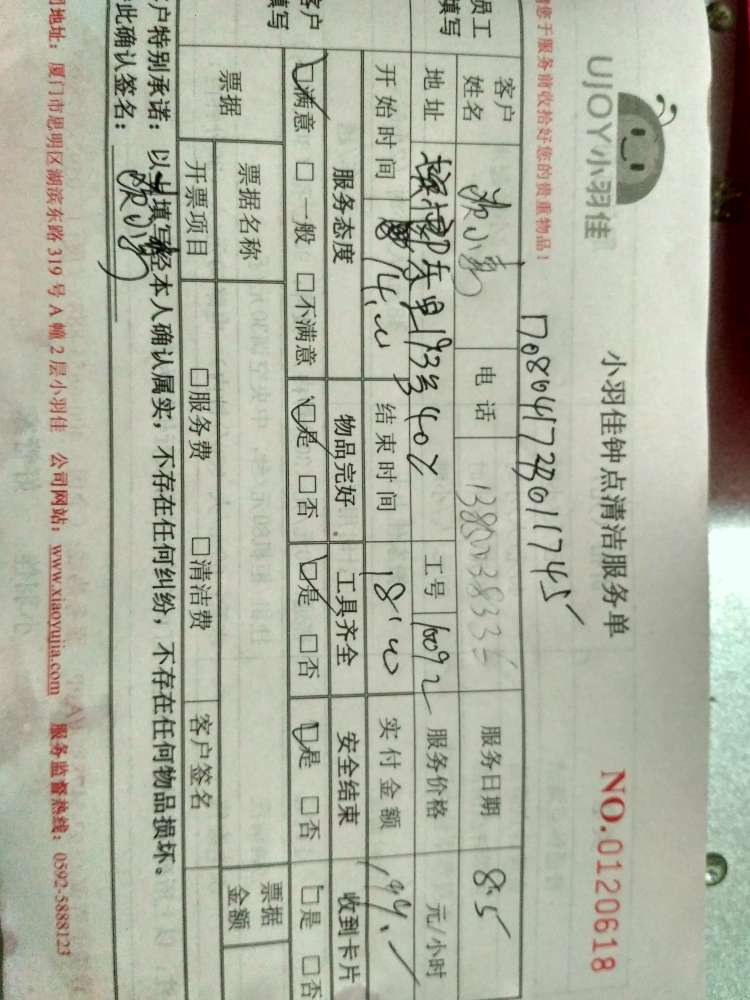 UJOY小羽佳
小羽佳钟点清洁服务单
NO.0120618
您于服务前收拾好您的贵重物品！
员工填写
客户姓名 电话 服务日期 8.5
地址 193号402 工号 16092 服务价格 元/小时
开始时间 14.00 结束时间 18:00 实付金额
客户填写
服务态度 物品完好 工具齐全 安全结束 收到卡片
☑满意 □一般 □不满意 ☑是 □否 ☑是 □否 ☑是 □否 □是 □否
票据 票据名称 票据金额
开票项目 □服务费 □清洁费 客户签名
户特别承诺：以上填写经本人确认属实，不存在任何纠纷，不存在任何物品损坏。
此确认签名：
司地址：厦门市思明区湖滨东路 319 号 A 幢 2 层小羽佳 公司网站：www.xiaoyujia.com 服务监督热线：0592-5888123